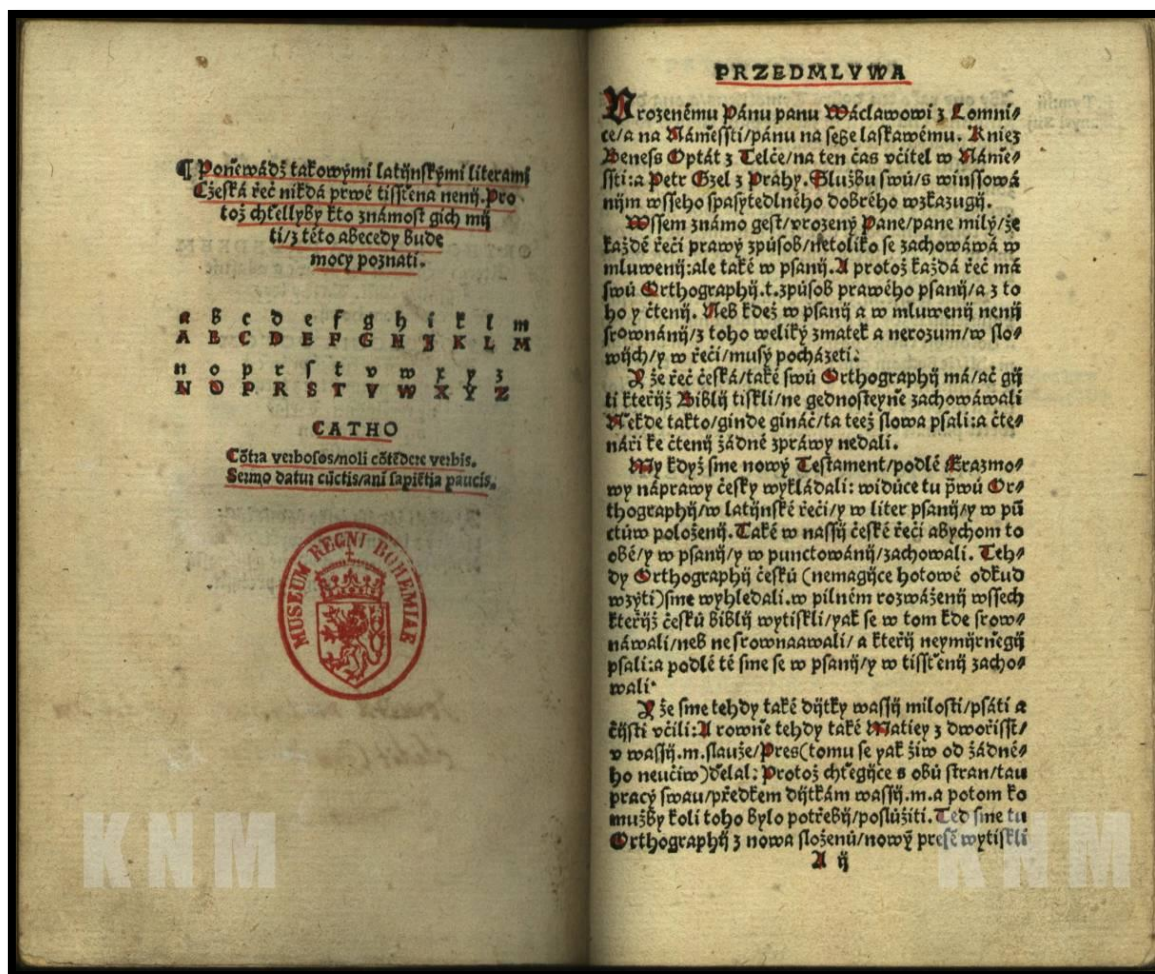 ¶ Poněwádž takowými latijnskými literami
Cžeská řeč nikdá prwé tisstěna nenij. Pro
tož chtellyby kto známost gich mij
ti/z této abecedy bude
mocy poznati.
a b c d e f g h i k l m
A B C D E F G H I K L M
n o p r s t v w x y z
N O P R S T V W X Y Z
CATHO
Cōtra verbosos/noli cōtēdere verbis.
Sermo datur cūctis/ani sapiētia paucis.
MUSEUM REGNI BOHEMIAE
KNM
PRZEDMLVWA
Vrozenému Pánu panu Wáclawowi z Lomni⸗
ce/a na Náměssti/pánu na sebe laskawému. Kniez
Beness Optát z Telče/na ten čas včitel w Náme⸗
ssti:a Petr Gzel z Prahy. Službu swú/s winssowá
nijm wsseho spasytedlného dobrého wzkazugij.
Wssem známo gest/vrozený Pane/pane milý/že
každé řeči prawý způsob/netoliko se zachowáwá w
mluwenij:ale také w psanij. A protož každá řeč má
swú Orthographij.t.způsob prawého psanij/a z to
ho y čtenij. Neb kdež w psanij a w mluwenij nenij
srownánij/z toho weliký zmatek a nerozum/w slo⸗
wijch/y w řeči/musý pocházeti:
Y že řeč česká/také swú Orthographij má/ač gij
ti kteřijž Biblij tiskli/ne gednosteyne zachowáwali
Někde takto/ginde gináč/ta teež slowa psali:a čte⸗
náři ke čtenij žádné zpráwy nedali.
My když sme nowý Testament/podlé Erazmo⸗
wy náprawy česky wykládali: widúce tu p̄wú Or⸗
thographij/w latijnské řeči/y w liter psanij/y w pū
ctúw položenij. Také w nassij české řeči abychom to
obé/y w psanij/y w punctowánij/zachowali. Teh⸗
dy Orthographij českú (nemagijce hotowé odkud
wzýti)sme wyhledali.w pilném rozwáženij wssech
kteřijž českú biblij wytiskli/yak se w tom kde srow⸗
náwali/neb nesrownaawali/ a kteřij neymijrnegij
psali:a podlé té sme se w psanij/y w tisstěnij zacho⸗
wali.
Y že sme tehdy také dijtky wassij milosti/psáti a
čijsti včili: A rowne tehdy také Matiey z dwořisst/
v wassij.m.slauže/Pres(tomu se yak žiw od žádné⸗
ho neučiw)dělal: Protož chtegijce s obú stran/tau
pracý swau/předkem dijtkám wassij.m.a potom ko
mužby koli toho bylo potřebij/poslúžiti. Teď sme tu
Orthographij z nowa složenú/nowý presē wytiskli
A ij
KNM